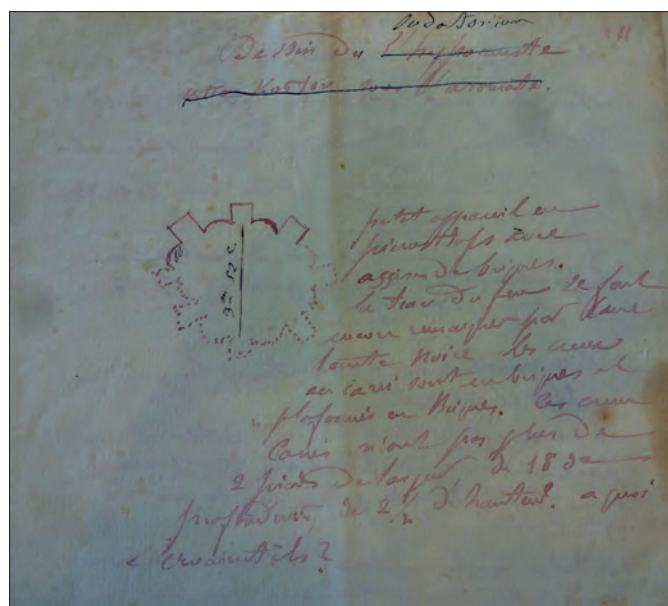 Sudatorium
Dessin de l'hypocauste
sous
petit appareil en
avec
assises de briques.
la trace du feu se fait
encore remarquer par
teinte noire les creux
en carré sont en briques et
plafonnés en Briques. Ces creux
Carrés n'ont pas plus de
2 pieds de largeur, de 18 de
profondeur, de 2 p. de hauteur. a quoi
servaient-ils ?
3m 52c